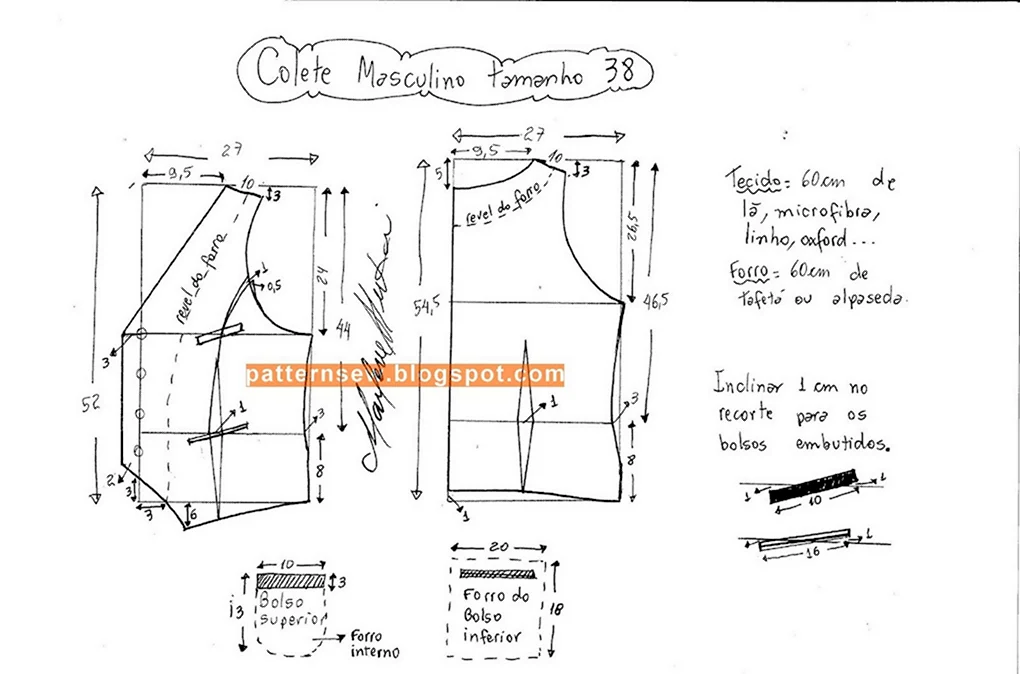 Colete Masculino tamanho 38
27
9,5
10
3
revel do forro
1
0,5
24
44
3
52
1
3
8
2
3
3
6
27
9,5
10
3
5
revel do forro
26,5
54,5
46,5
3
1
8
1
patternsew.blogspot.com
Tecido = 60cm de
lã, microfibra,
linho, oxford...
Forro = 60cm de
tafetá ou alpaseda.
Inclinar 1 cm no
recorte para os
bolsos embutidos.
1
1
10
1
1
16
10
3
13
Bolso
superior
Forro
interno
20
Forro do
Bolso
inferior
18